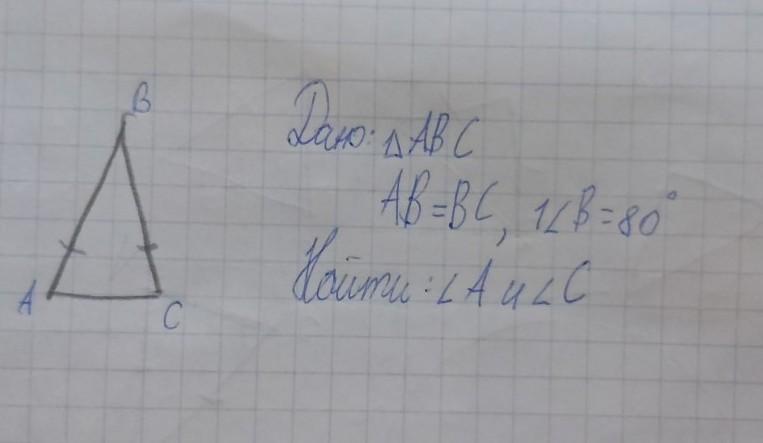 B
A
C
Дано: △ABC
AB=BC, 1∠B=80°
Найти: ∠A и ∠C